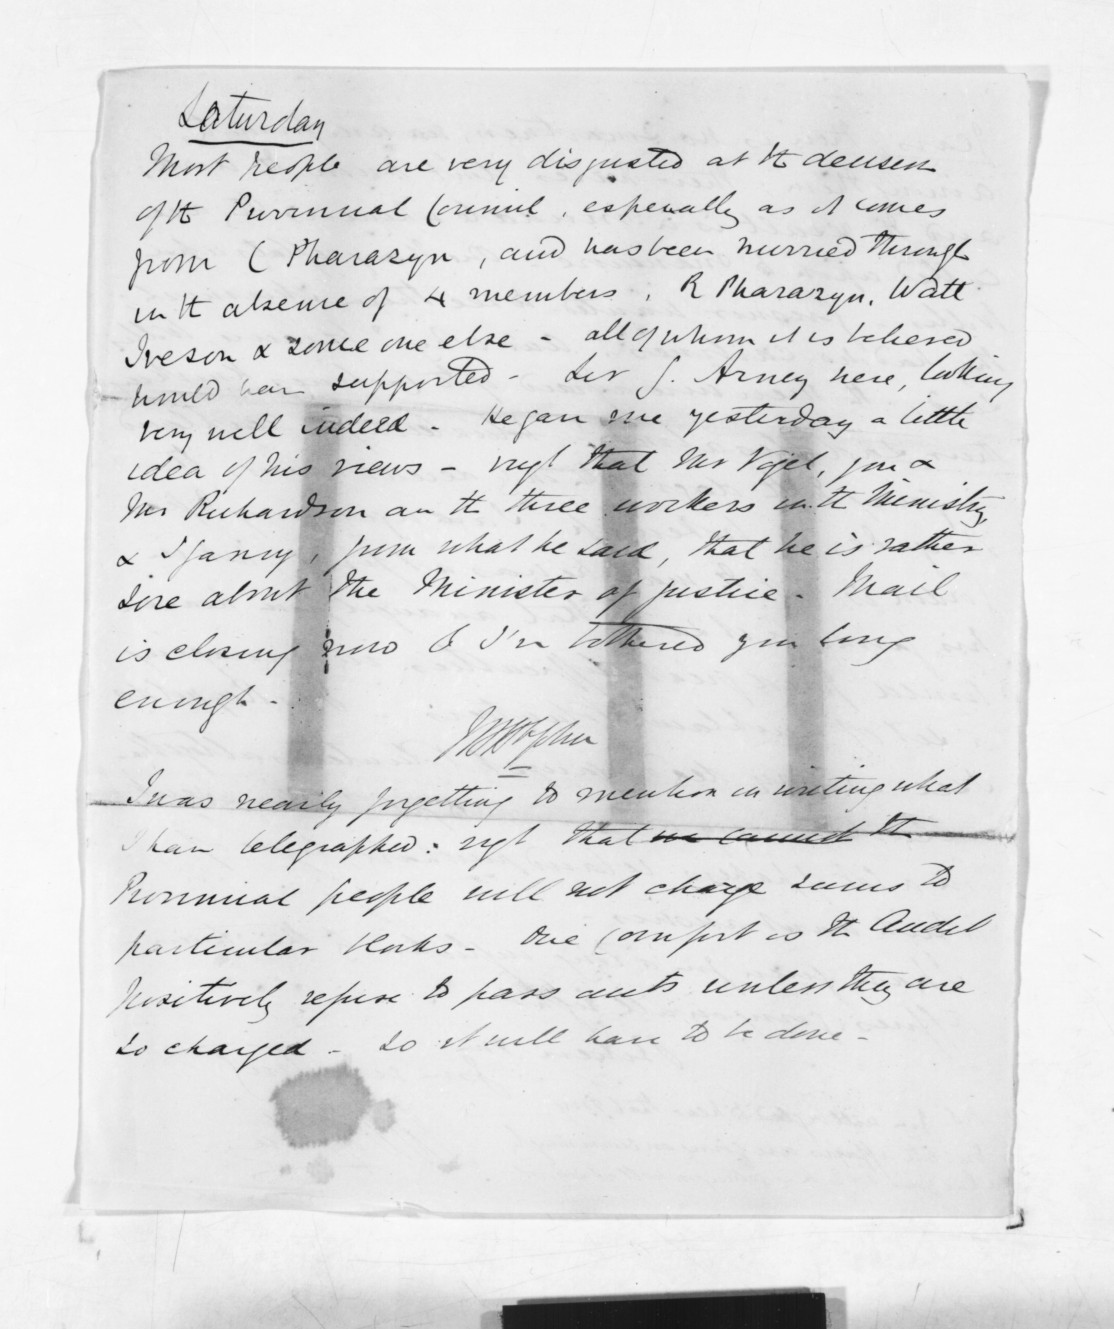 Saturday
Most people are very disgusted at the decision
of the Provincial Council, especially as it comes
from C Pharazyn, and has been hurried through
in the absence of 4 members, R Pharazyn, Watt
Iveson & some one else - all of whom it is believed
would have supported - Sir G. Arney here, looking
very well indeed - He gave me yesterday a little
idea of his views - that Mr Vogel, you &
Mr Richardson are the three workers in the Ministry,
& I fancy, from what he said, that he is rather
sore about the Minister of Justice - Mail
is closing now & I've bothered you long
enough -
I was nearly forgetting to mention in writing what
I have telegraphed: that we cannot the
Provincial people will not charge sums to
particular blocks - One comfort is the Audit
positively refuse to pass accts unless they are
so charged - So it will have to be done -